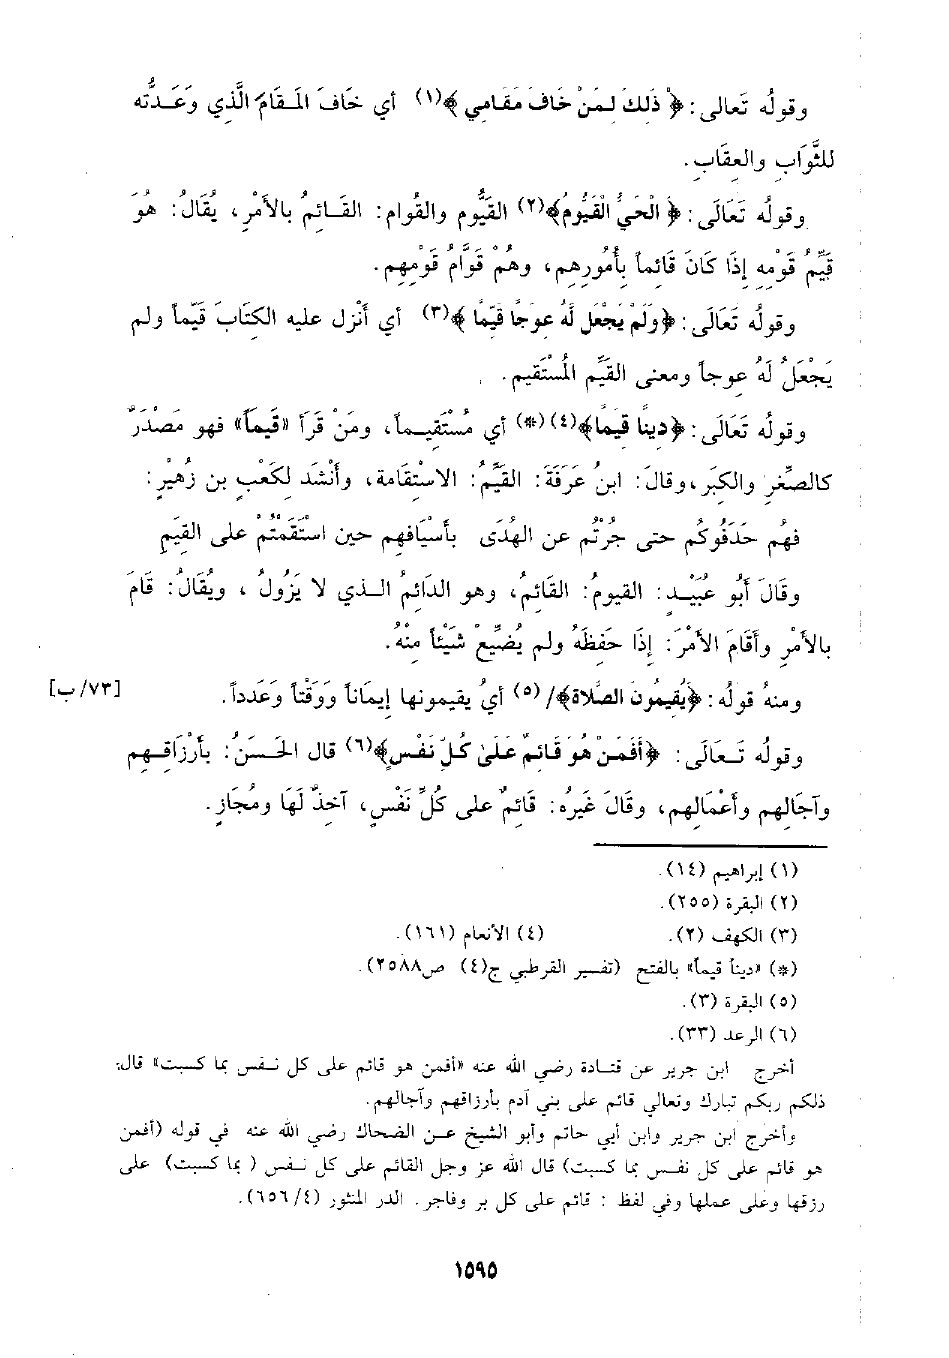 وقولُه تَعالى: ﴿ ذَلِكَ لِمَنْ خَافَ مَقَامِي ﴾(١) أي خَافَ المَقَامَ الَّذي وَعَدتُّه
للثَّوَابِ والعِقَابِ.
وقولُه تَعَالَى: ﴿ الْحَيُّ الْقَيُّومُ﴾(٢) القَيُّوم والقُوام: القَائِمُ بالأمْرِ، يُقَالُ: هُوَ
قَيِّمُ قَوْمِهِ إذَا كَانَ قَائِماً بأُمُورِهِم، وهُمْ قَوَّامُ قَومِهِم.
وقولُه تَعَالَى: ﴿وَلَمْ يَجْعَل لَّهُ عِوَجًا قَيِّمًا ﴾(٣) أي أَنْزل عليه الكتَابَ قَيِّماً ولم
يَجْعَلُ لَهُ عوجاً ومعنى القَيِّم المُسْتَقيم.
وقولُه تَعَالَى: ﴿دِينًا قَيِّمًا﴾(٤)(*) أي مُسْتَقِيماً، ومَنْ قَرَأ «قِيَماً» فهو مَصْدَرٌ
كالصِّغَرِ والكِبَر، وقالَ: ابنُ عَرَفَةَ: القَيِّمُ: الاسْتِقَامة، وأنْشَد لكَعْبِ بن زُهَيْرٍ:
فهُم حَذَفُوكُم حتى جُرْتُم عن الهُدَى بأسْيَافِهم حين اسْتَقَمْتُمْ على القِيَمِ
وقَالَ أبُو عُبَيْدٍ: القيومُ: القَائِمُ، وهو الدَائِمُ الذي لا يَزُولُ، ويُقَالُ: قَامَ
بالأمْرِ وأقَامَ الأمْرَ: إذَا حَفِظَهُ ولم يُضَيِّعْ شَيْئاً مِنْهُ.
ومنهُ قولُه: ﴿يُقِيمُونَ الصَّلاةَ﴾/(٥) أيُ يقيمونها إيمَاناً وَوَقْتاً وَعَدداً. [٧٣/ب]
وقولُه تَعَالَى: ﴿أَفَمَنْ هُوَ قَائِمٌ عَلَىٰ كُلِّ نَفْسٍ﴾(٦) قال الحَسَنُ: بأرْزَاقِهِم
وآجَالِهم وأعْمَالِهم، وقَالَ غَيرُه: قَائِمٌ على كُلِّ نَفْسٍ، آخِذٌ لَهَا ومُجَازٍ.
(١) إبراهيم (١٤).
(٢) البقرة (٢٥٥).
(٣) الكهف (٢). (٤) الأنعام (١٦١).
(*) «ديناً قيماً» بالفتح (تفسير القرطبي ج(٤) ص٢٥٨٨).
(٥) البقرة (٣).
(٦) الرعد (٣٣).
أخرج ابن جرير عن قتادة رضي الله عنه «أفمن هو قائم على كل نفس بما كسبت» قال:
ذلكم ربكم تبارك وتعالي قائم على بني آدم بأرزاقهم وآجالهم.
وأخرج ابن جرير وابن أبي حاتم وأبو الشيخ عن الضحاك رضي الله عنه في قوله (أفمن
هو قائم على كل نفس بما كسبت) قال الله عز وجل القائم على كل نفس ( بما كسبت) على
رزقها وعلى عملها وفي لفظ : قائم على كل بر وفاجر. الدر المنثور (٦٥٦/٤).
١٥٩٥